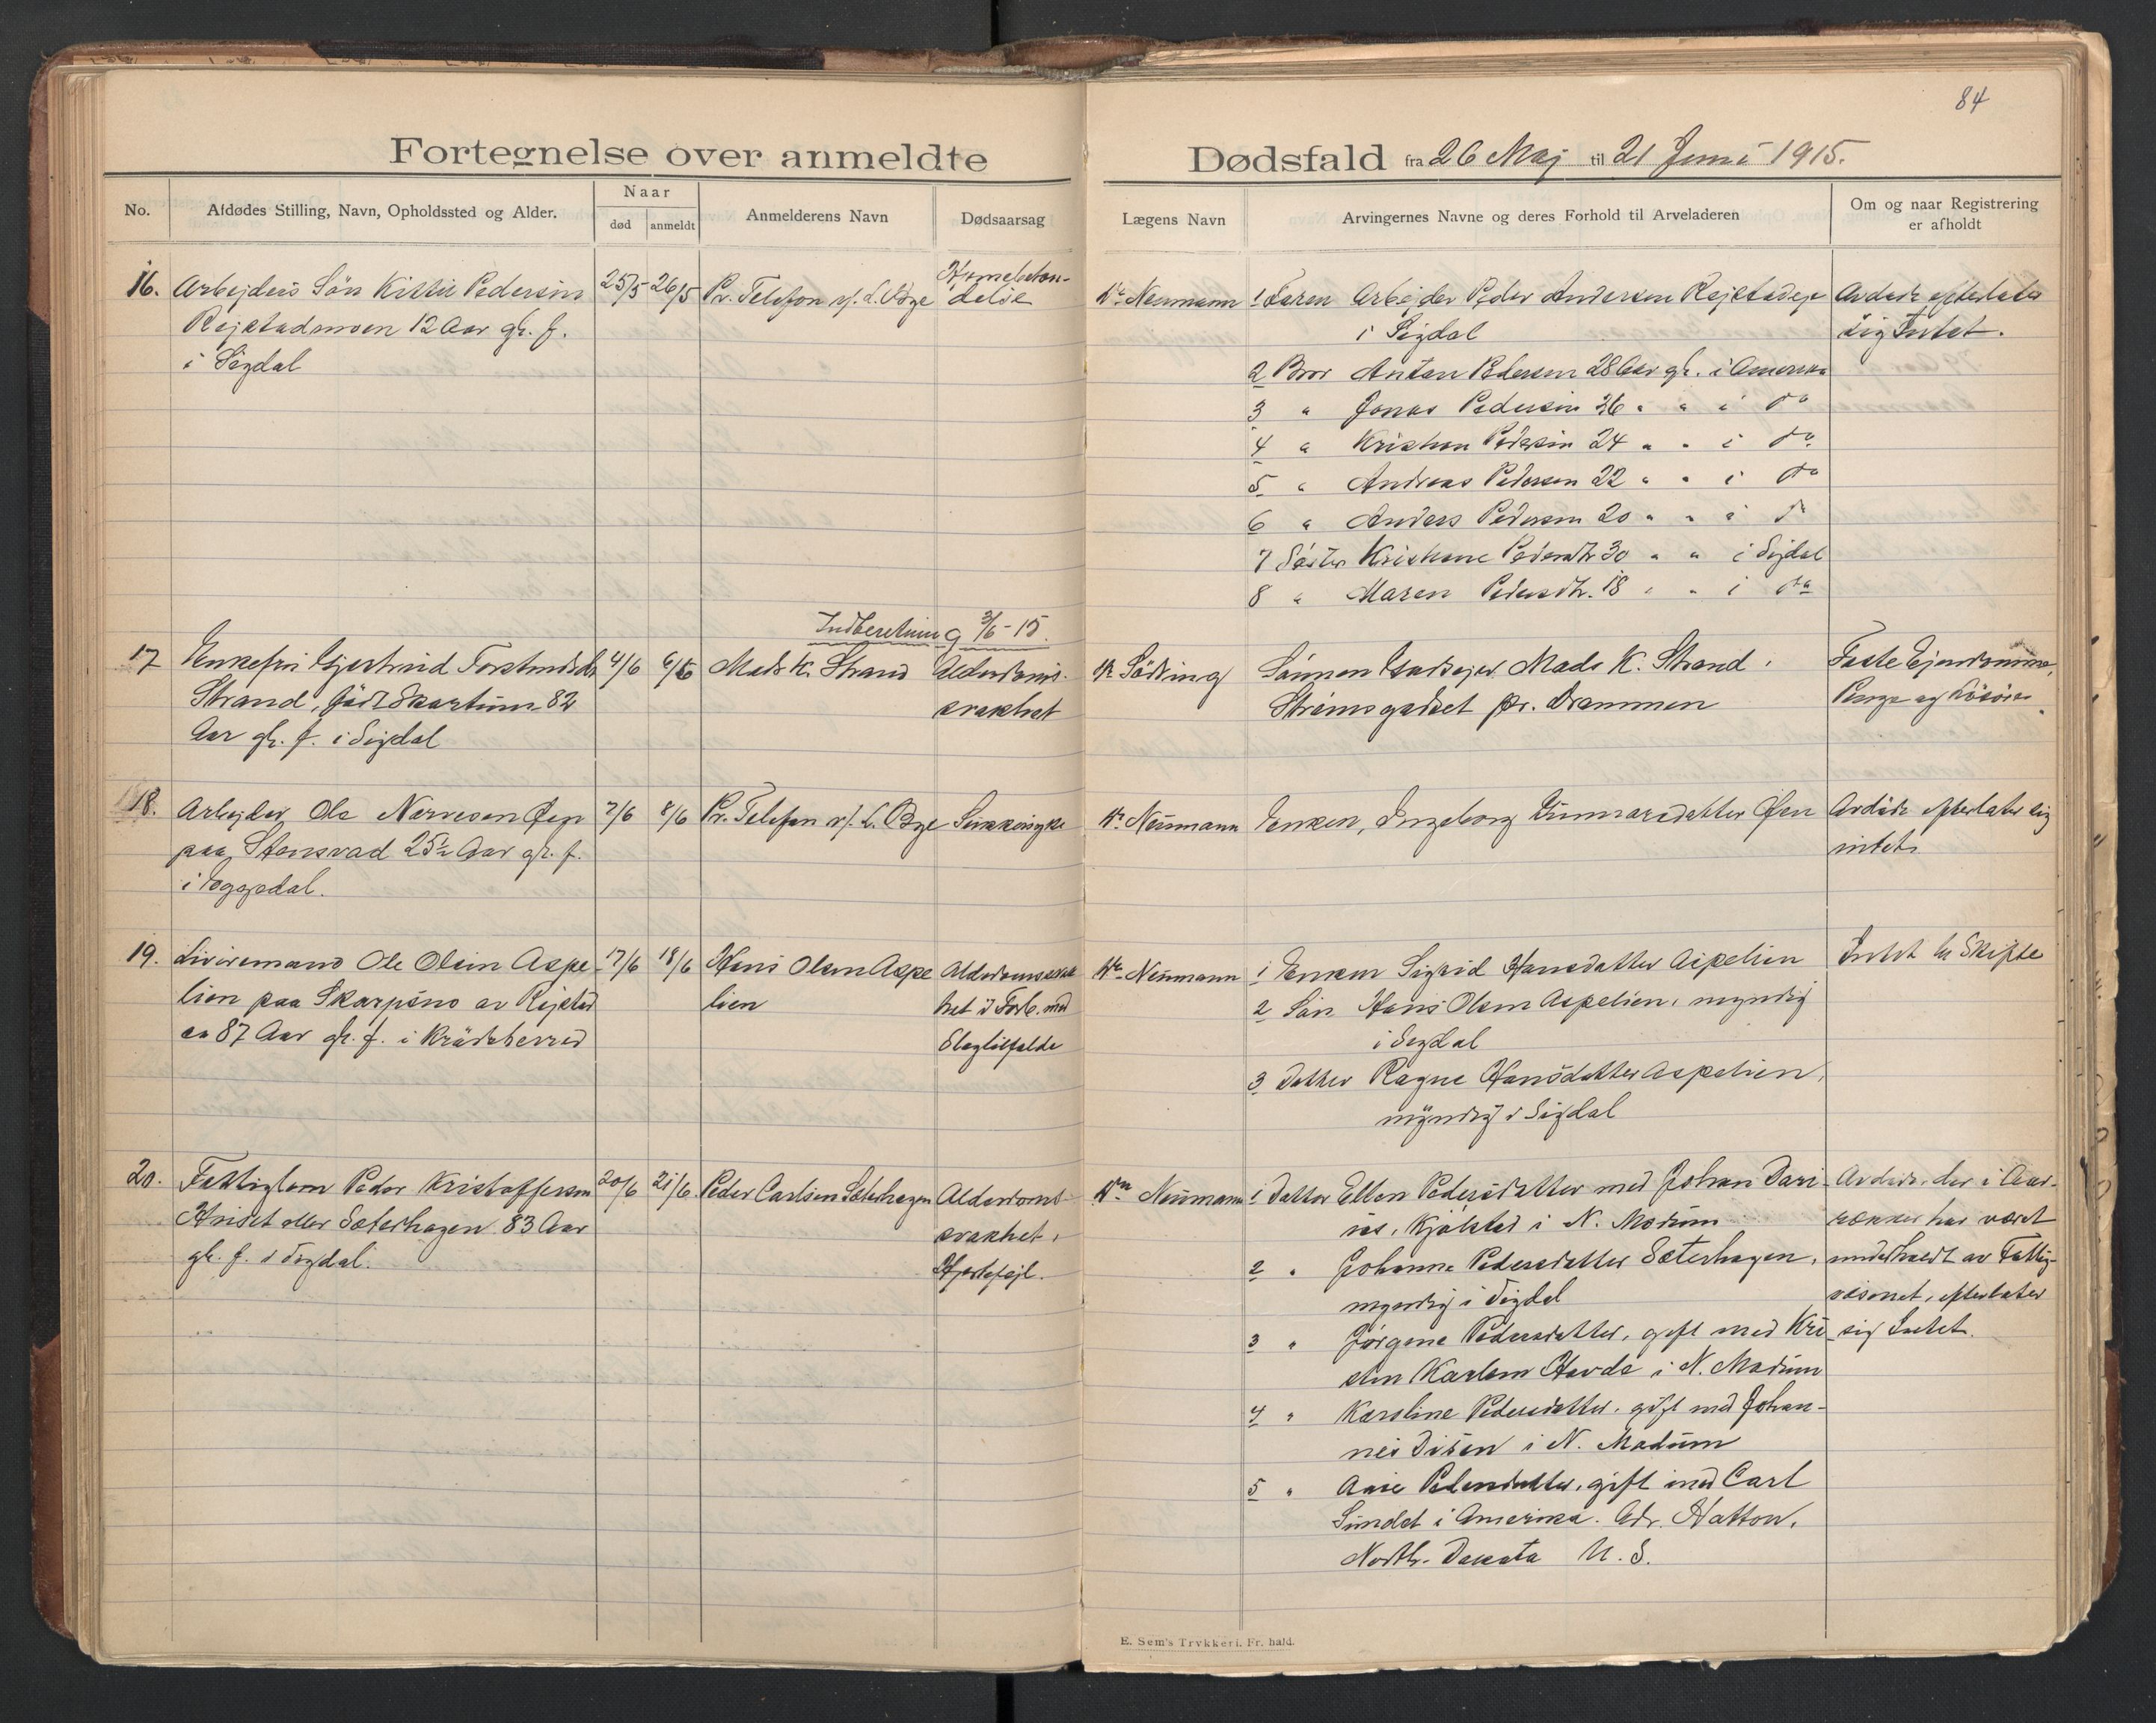 84
Fortegnelse over anmeldte Dødsfald fra 26 Maj til 21 Juni 1915.
No.
Afdødes Stilling, Navn, Opholdssted og Alder.
Naar
død
anmeldt
Anmelderens Navn
Dødsaarsag
Lægens Navn
Arvingernes Navne og deres Forhold til Arveladeren
Om og naar Registrering
er afholdt
16.
Arbejders Søn Kittil Pedersen
Rejstadmoen 12 Aar gl. f.
i Sigdal
25/5
26/5
Pr. Telefon v/. L. Bye
Hjernebetæn-
delse
Dr. Neumann
1 Faren Arbejder Peder Andersen Rejstadeje
i Sigdal
2 Bror Anton Pedersen 28 Aar gl. i Amerika
3 " Jonas Pedersen 26 " " i do
4 " Kristian Pedersen 24 " " i do
5 " Andreas Pedersen 22 " " i do
6 " Anders Pedersen 20 " " i do
7 Søster Kristiane Pedersdtr. 30 " " i Sigdal
8 " Maren Pedersdtr. 18 " " i do
Avdøde efterlater
sig Intet.
Indberetning 3/6-15.
17
Enkefru Gjertrud Torstensdtr
Strand, født Skartum 82
Aar gl. f. i Sigdal
4/6
6/6
Mads K. Strand
Alderdoms-
svakhet
Dr Sødring
Sønnen Gardejer Mads K. Strand,
Strømsgodset pr. Drammen
Faste Ejendomme,
Penge og Løsøre.
18.
Arbejder Ole Narvesen Øen
paa Stensvad 25½ Aar gl. f.
i Eggedal.
7/6
8/6
Pr. Telefon v/. L. Bye
Sukkersyke
Dr. Neumann
Enken, Ingeborg Gunnarsdatter Øen
Avdøde efterlater sig
intet.
19.
Livøremand Ole Olsen Aspe-
lien paa Skarpsno av Rejstad
ca 87 Aar gl. f. i Krødsherred
17/6
18/6
Hans Olsen Aspe
lien
Alderdomssvak
het i Forb. med
Slagtilfælde
Dr. Neumann
1 Enken Sigrid Hansdatter Aspelien
2 Søn Hans Olsen Aspelien, myndig
i Sigdal
3 Datter Ragne Hansdatter Aspelien,
myndig i Sigdal
Intet til Skifte
20.
Fattiglem Peder Kristoffersen
eller Sæterhagen 83 Aar
gl. f. i Sigdal.
20/6
21/6.
Peder Carlsen Sæterhagen
Alderdoms-
svakhet,
Hjertefejl.
Dr. Neumann
1 Datter Ellen Pedersdatter med Johan Dari-
us, Kjølstad i N. Modum
2 " Johanne Pedersdatter Sæterhagen,
myndig i Sigdal
3 " Jørgine Pedersdatter, gift med Kri
sten Karlsen Hovde i N. Modum
4 " Karoline Pedersdatter, gift med Johan-
nes Disen i N. Modum
5 " Aase Pedersdatter, gift med Carl
Sundet i Amerika. Adr. Hatton,
North-Dakota U. S.
Avdøde, der i Aar-
rækker har været
underholdt av Fattig-
væsenet, efterlater
sig Intet.
E. Sem's Trykkeri, Fr. hald.